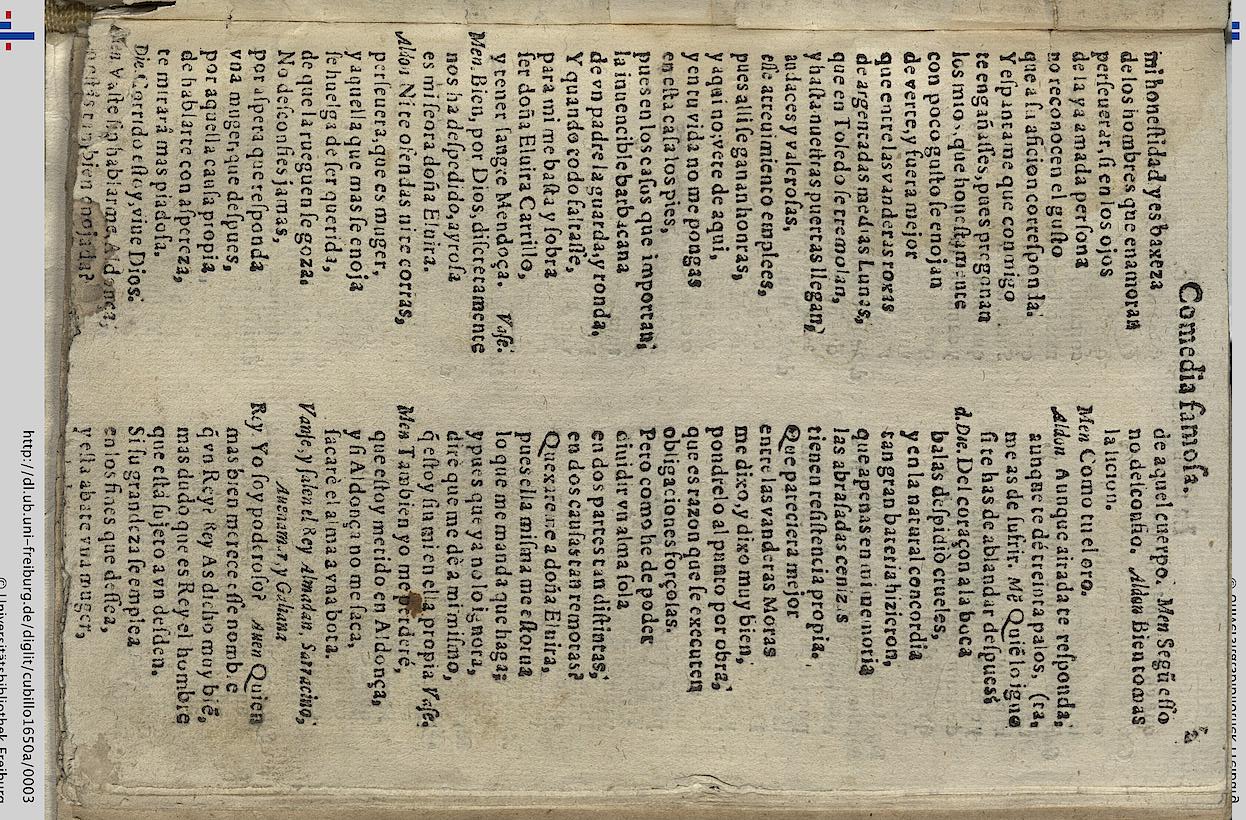 Comedia famosa.
mi honestidad y es baxeza
de los hombres que enamoran
perseuerar, si en los ojos
de la ya amada persona
no reconocen el gusto
que a su aficion corresponda.
Y espantame que conmigo
te engañasses, pues pregonan
los mios, que honestamente
con poco gusto se enojan
de verte, y fuera mejor
que entre las vanderas roxas
de argentadas medias Lunas,
que en Toledo se tremolan,
y hasta nuestras puertas llegan,
audaces y valerosas,
esse atreuimiento emplees,
pues alli se ganan honras,
y aqui no, vete de aqui,
y en tu vida no me pongas
en esta casa los pies,
pues en los casos que importan,
la inuencible barbacana
de vn padre la guarda, y ronda,
Y quando todo faltasse,
para mi me basta y sobra
ser doña Eluira Carrillo,
y tener sangre Mendoça. Vase.
Men. Bien, por Dios, discretamente
nos ha despedido, ayrosa
es mi señora doña Eluira.
Aldon Ni te ofendas ni te corras,
perseuera, que es muger,
y aquella que mas se enoja
se huelga de ser querida,
de que la rueguen se goza.
No desconfies jamas,
por aspera que responda
vna muger, que despues,
por aquella causa propia
de hablarte con aspereza,
te mirarà mas piadosa.
Die. Corrido estoy, viue Dios.
Men Vase sin hablarme, Aldonça,
enojada?
de aquel cuerpo. Men Segũ esso
no desconfio. Aldon Bien tomas
la licion.
Men Como tu el oro.
Aldon Aunque airada te responda,
aunque te dè treinta palos, (ra,
me as de sufrir. Mē Quiē lo igno
si te has de ablandar despues?
d. Die. Del coraçon a la boca
balas despidiò crueles,
y en la natural concordia
tan gran bateria hizieron,
que apenas en mi memoria
las abrasadas cenizas
tienen resistencia propia.
Que pareciera mejor
entre las vanderas Moras
me dixo, y dixo muy bien,
pondrelo al punto por obra,
que es razon que se executen
obligaciones forçosas.
Pero como he de poder
diuidir vn alma sola
en dos partes tan distintas,
en dos causas tan remotas?
Quexareme a doña Eluira,
pues ella misma me estorua
lo que me manda que haga;
y pues que ya no lo ignora,
dirè que me dè a mi mismo,
q̃ estoy sin mi en ella propia Vase.
Men Tambien yo me perderé,
que estoy metido en Aldonça,
y si Aldonça no me saca,
sacarè el alma a vna bota.
Vanse, y salen el Rey Almadan, Sarracino,
Auenamar, y Galiana
Rey Yo soy poderoso? Auen Quien
mas bien merece esse nombre
q̃ vn Rey? Rey As dicho muy biē,
mas dudo que es Rey el hombre
que està sujeto a vn desden.
Si su grandeza se emplea
en los fines que dessea,
y esta abate vna muger,
http://dl.ub.uni-freiburg.de/diglit/cubillo1650a/0003
© Universitätsbibliothek Freiburg